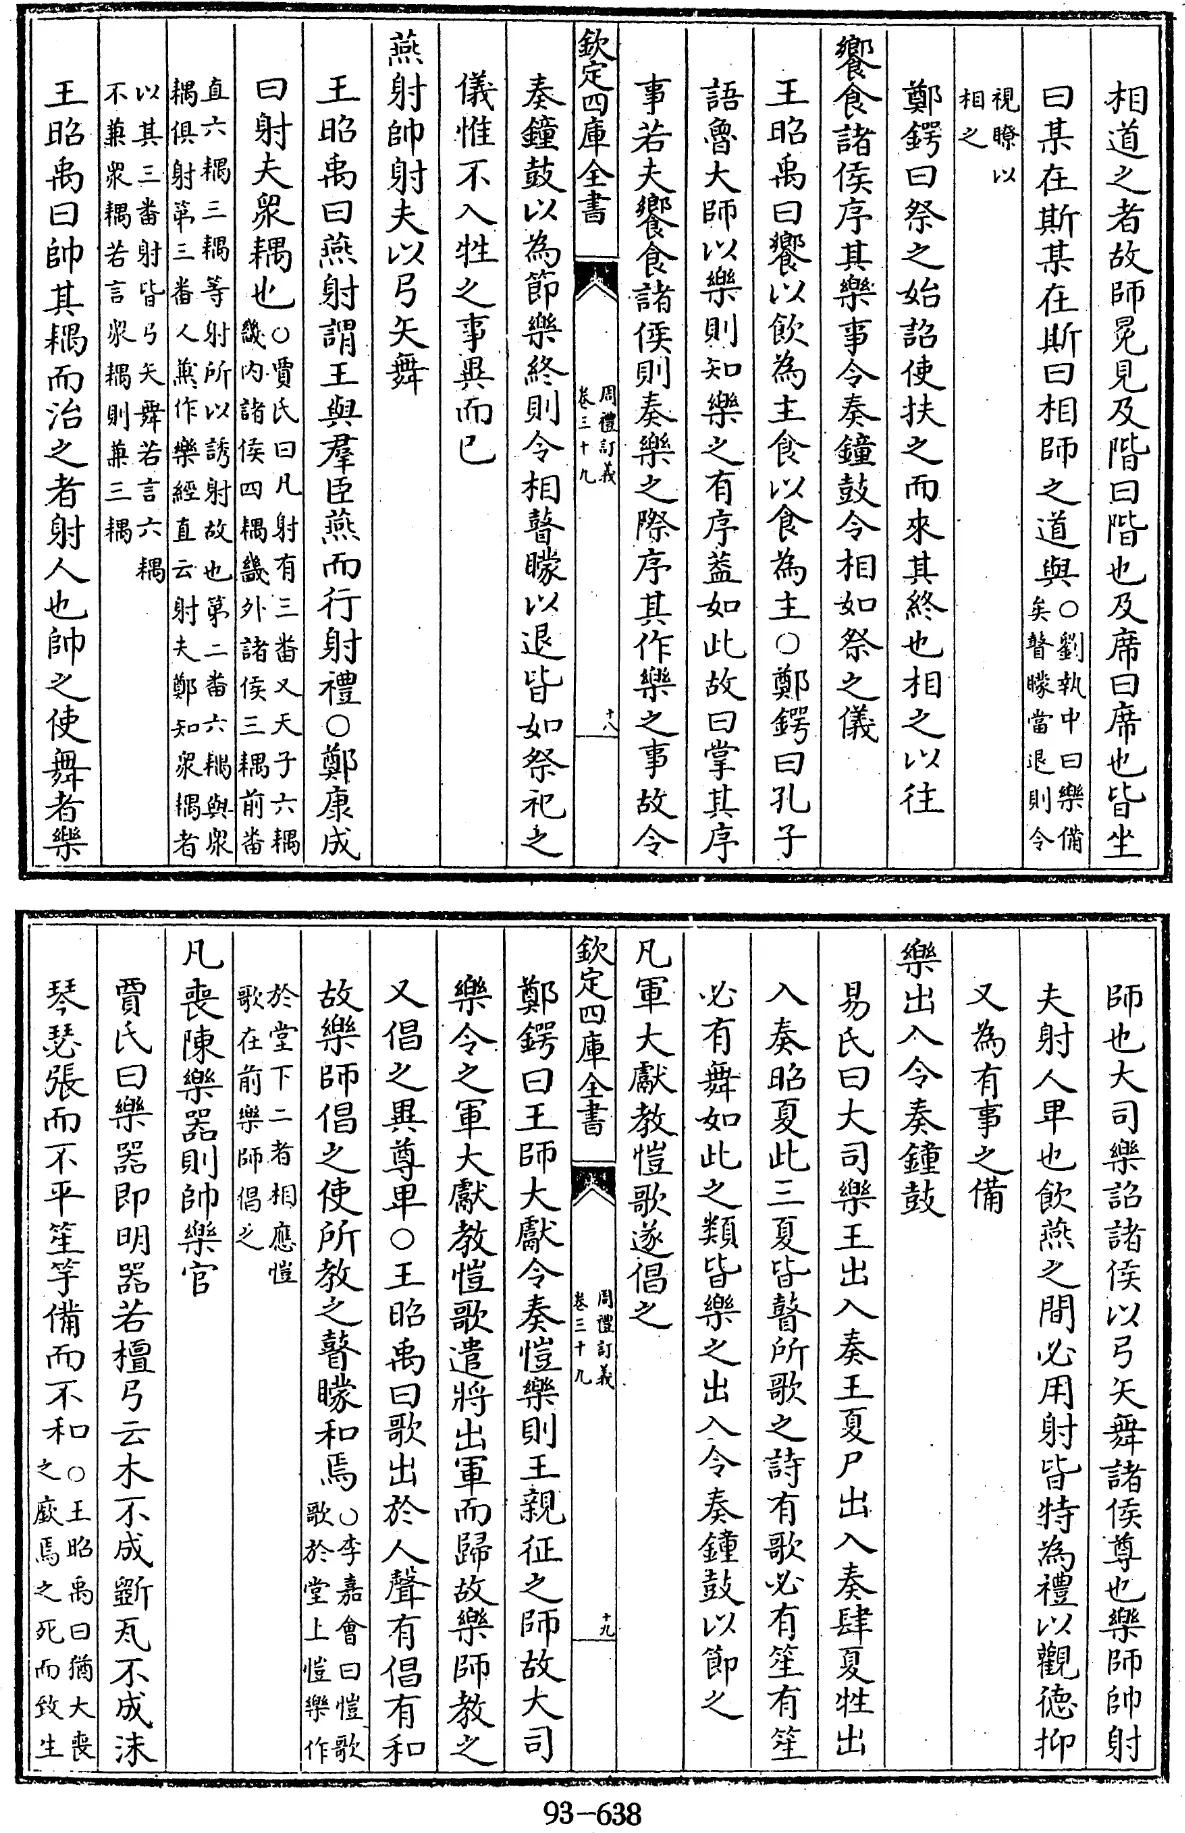 相道之者故師冕見及階曰階也及席曰席也皆坐
曰某在斯某在斯曰相師之道與○劉執中曰樂備矣瞽矇當退則令
視瞭以相之
鄭鍔曰祭之始詔使扶之而來其終也相之以往
饗食諸侯序其樂事令奏鐘鼓令相如祭之儀
王昭禹曰饗以飲為主食以食為主○鄭鍔曰孔子
語魯大師以樂則知樂之有序蓋如此故曰掌其序
事若夫饗食諸侯則奏樂之際序其作樂之事故令
欽定四庫全書
周禮訂義
卷三十九
十八
奏鐘鼓以為節樂終則令相瞽矇以退皆如祭祀之
儀惟不入牲之事異而已
燕射帥射夫以弓矢舞
王昭禹曰燕射謂王與羣臣燕而行射禮○鄭康成
曰射夫衆耦也○賈氏曰凡射有三畨又天子六耦畿内諸侯四耦畿外諸侯三耦前畨
直六耦三耦等射所以誘射故也第二畨六耦與衆耦俱射第三畨人兼作樂經直云射夫鄭知衆耦者
以其三畨射皆弓矢舞若言六耦不兼衆耦若言衆耦則兼三耦
王昭禹曰帥其耦而治之者射人也帥之使舞者樂
師也大司樂詔諸侯以弓矢舞諸侯尊也樂師帥射
夫射人卑也飲燕之間必用射皆特為禮以觀德抑
又為有事之備
樂出入令奏鐘鼓
易氏曰大司樂王出入奏王夏尸出入奏肆夏牲出
入奏昭夏此三夏皆瞽所歌之詩有歌必有笙有笙
必有舞如此之類皆樂之出入令奏鐘鼓以節之
凡軍大獻教愷歌遂倡之
欽定四庫全書
周禮訂義
卷三十九
十九
鄭鍔曰王師大獻令奏愷樂則王親征之師故大司
樂令之軍大獻教愷歌遣將出軍而歸故樂師教之
又倡之異尊卑○王昭禹曰歌出於人聲有倡有和
故樂師倡之使所教之瞽矇和焉○李嘉會曰愷歌歌於堂上愷樂作
於堂下二者相應愷歌在前樂師倡之
凡喪陳樂器則帥樂官
賈氏曰樂器即明器若檀弓云木不成斲瓦不成沬
琴瑟張而不平笙竽備而不和○王昭禹曰猶大喪之廞焉之死而致生
93-638